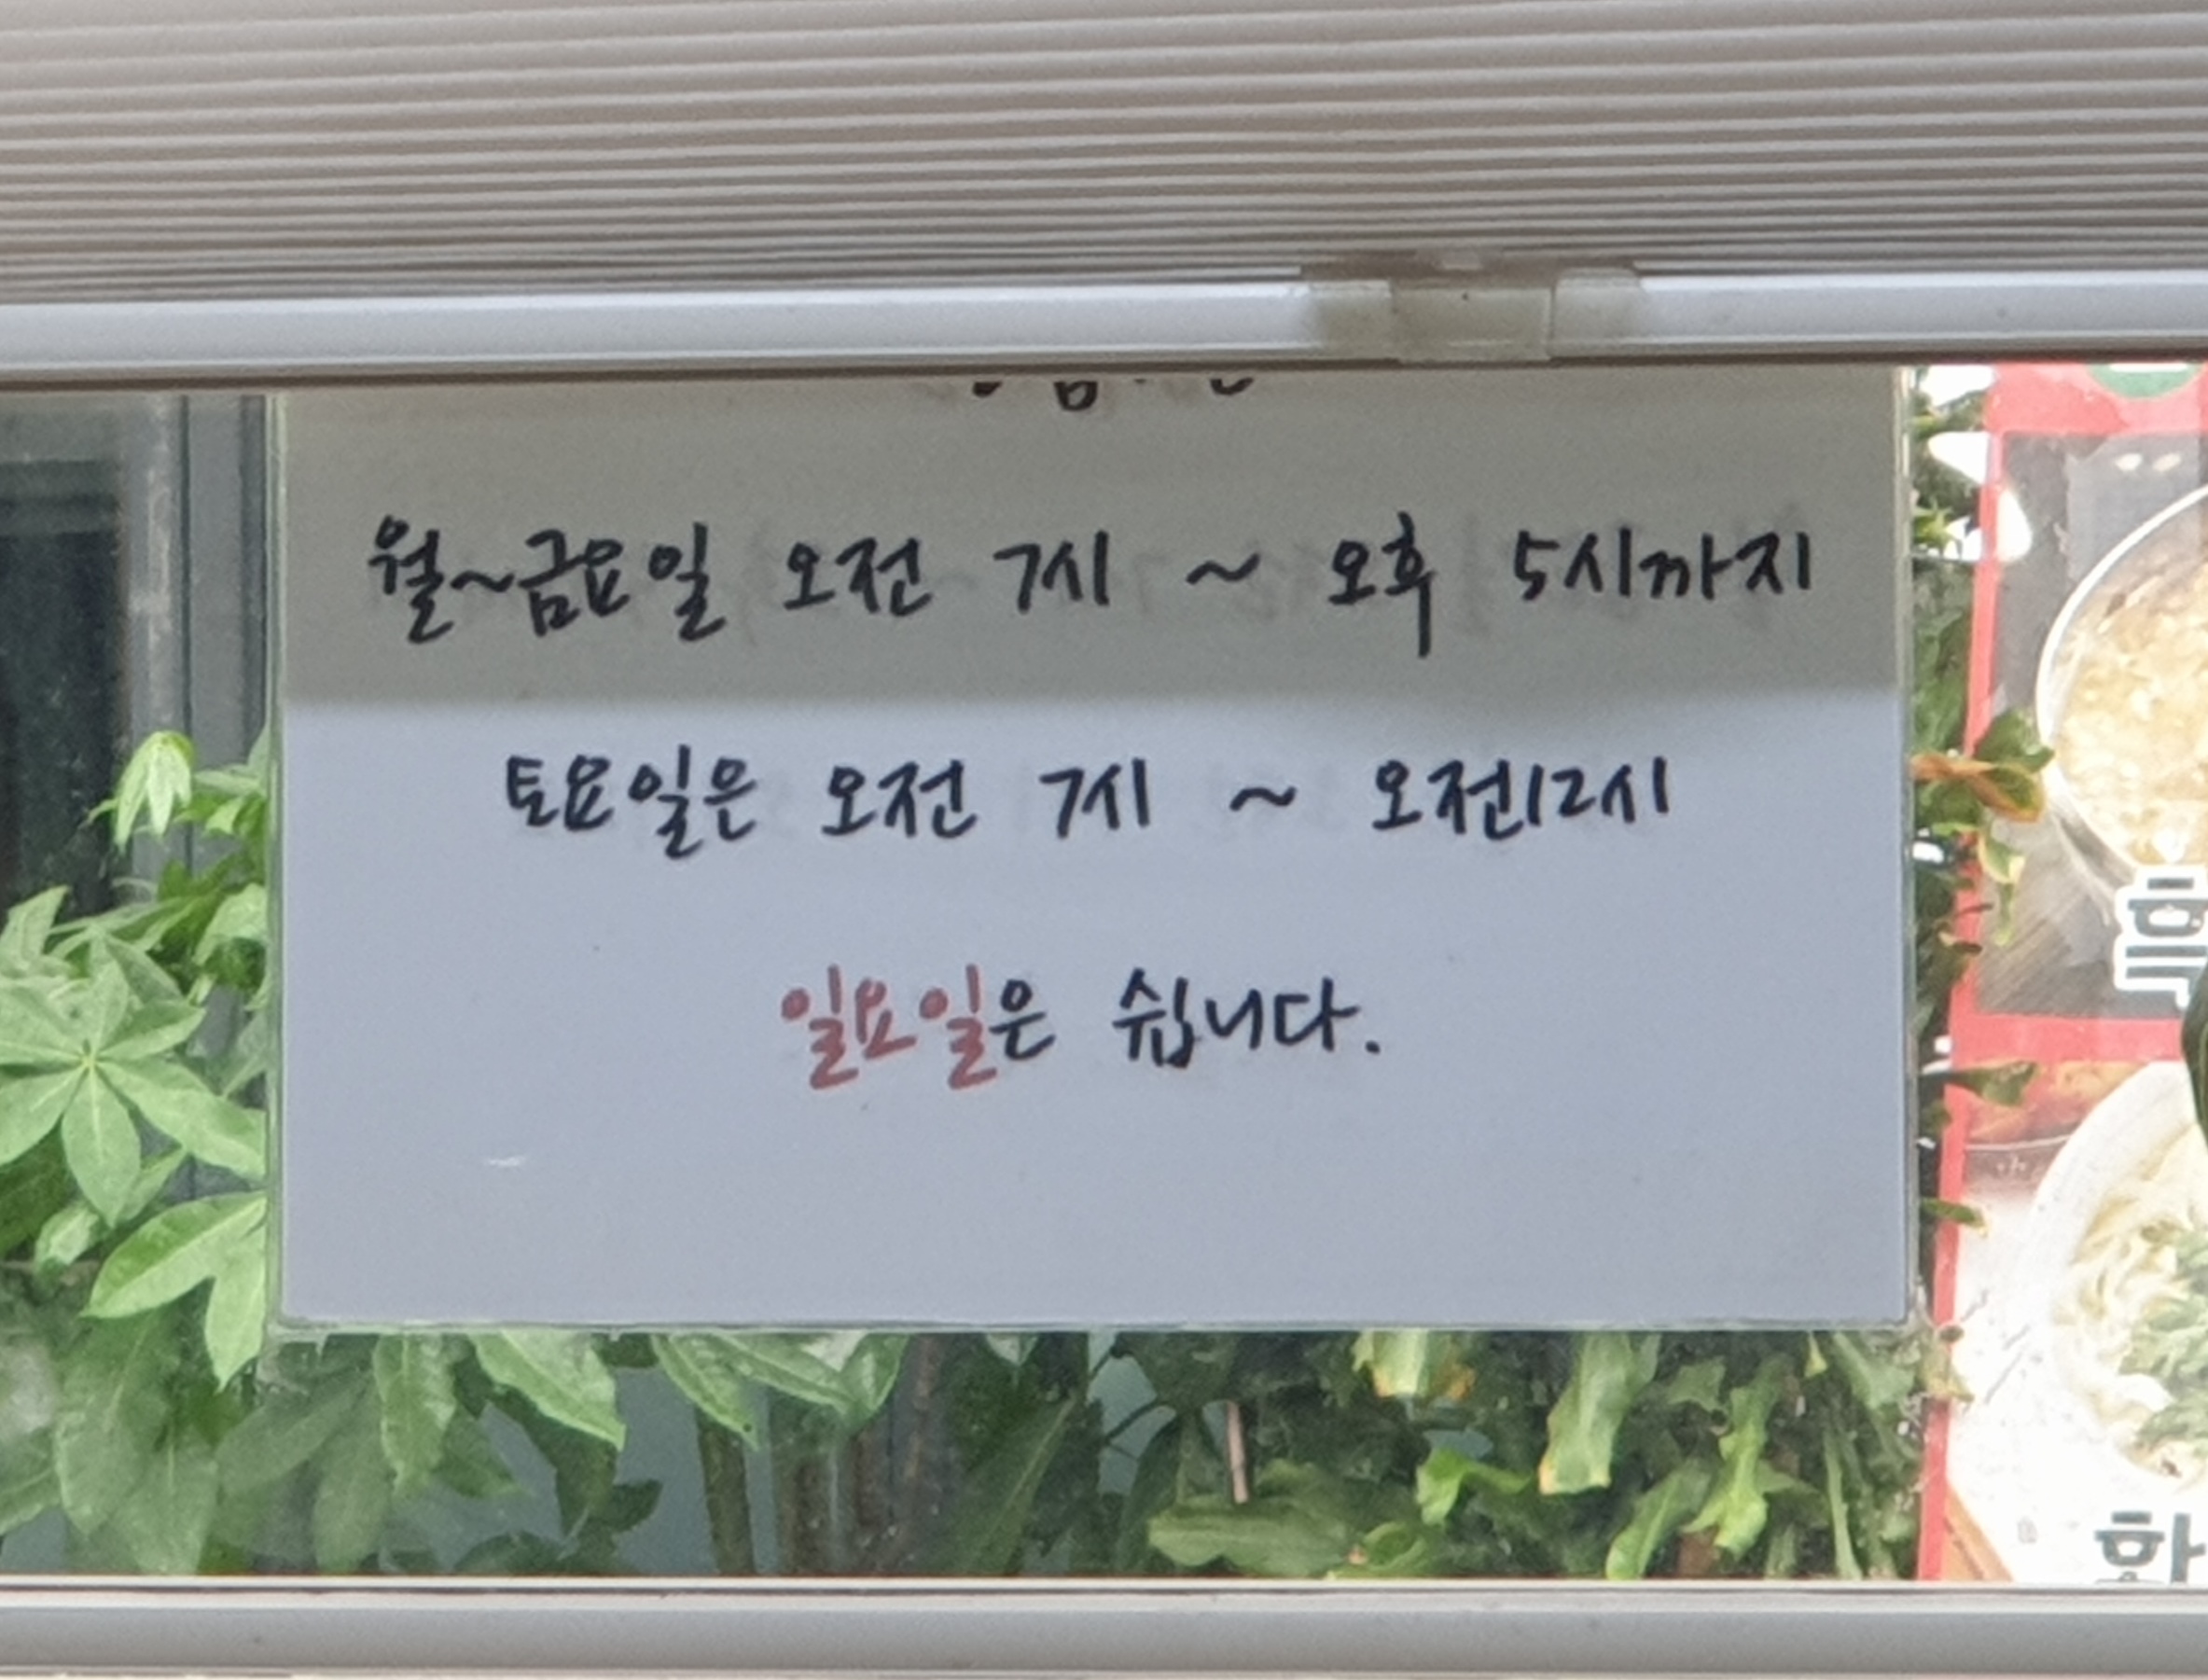 월~금요일 오전 7시 ~ 오후 5시까지
토요일은 오전 7시 ~ 오전12시
일요일은 쉽니다.